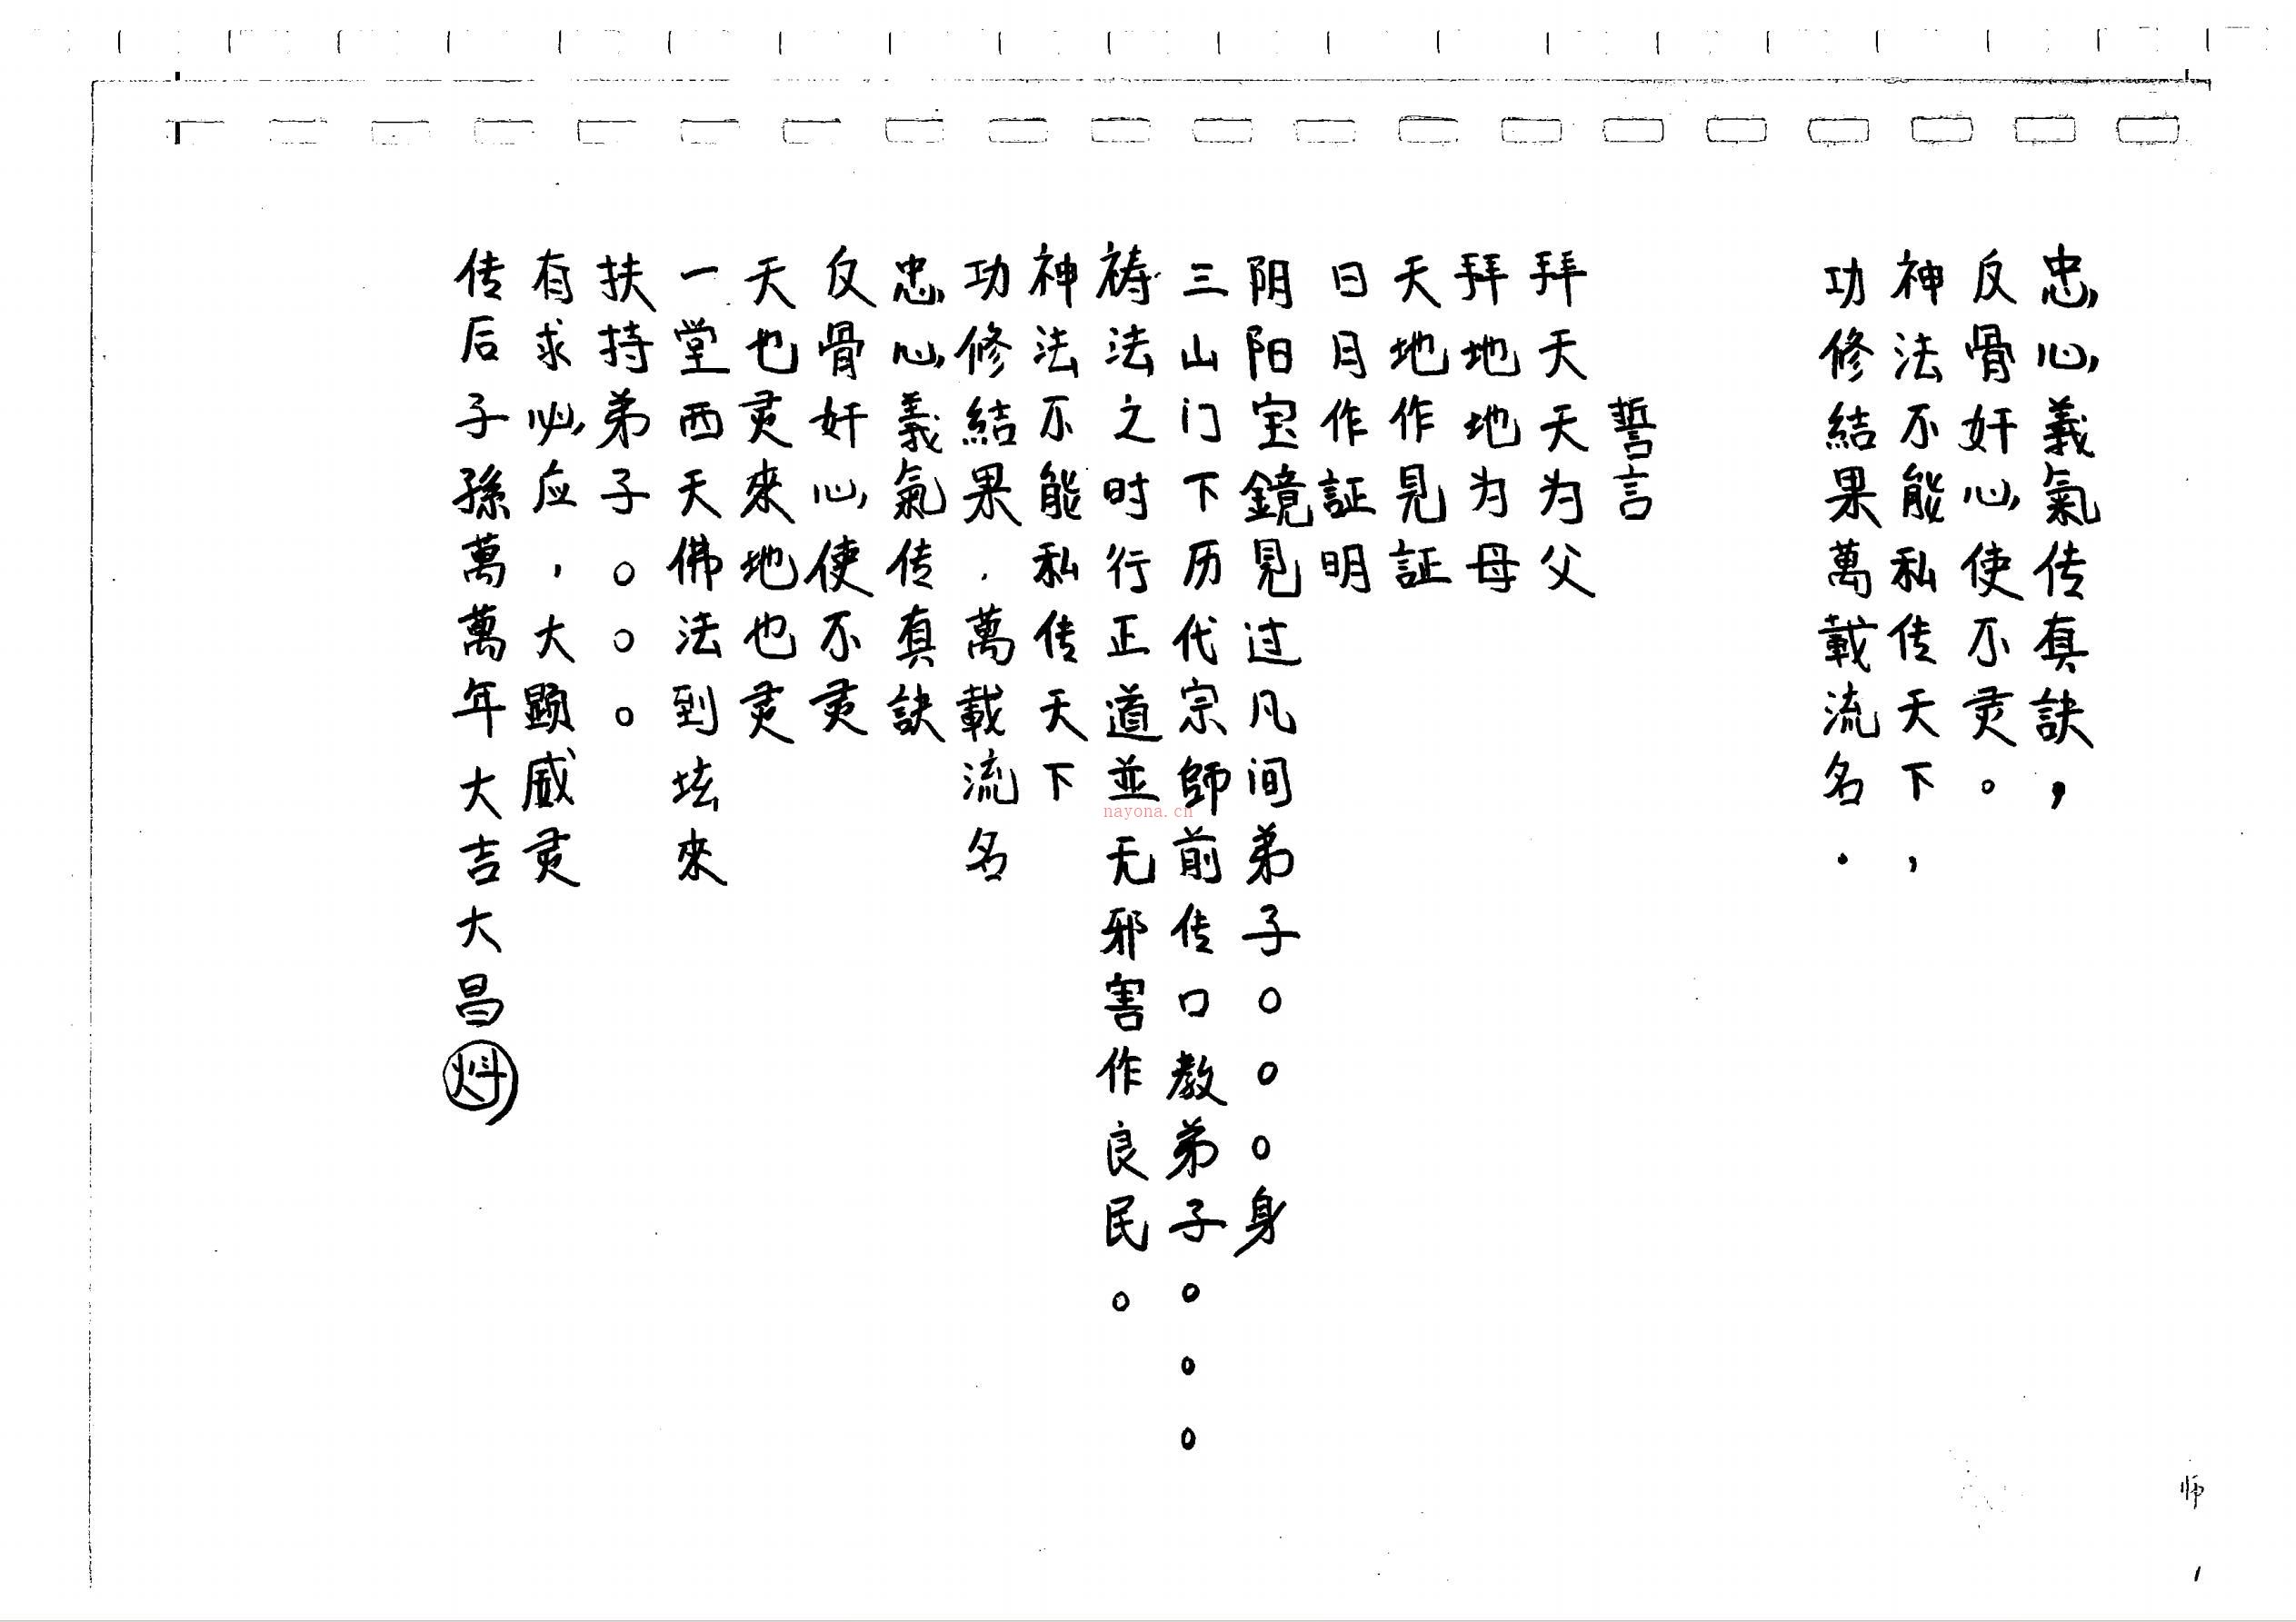 忠心義氣传真訣，
反骨奸心使不灵。
神法不能私传天下，
功修結果萬載流名．
誓言
拜天天为父
拜地地为母
天地作見証
日月作証明
阴阳宝鏡見过凡间弟子○○○身
三山门下历代宗師前传口教弟子○○○
祷法之时行正道並无邪害作良民。
神法不能私传天下
功修結果．萬載流名
忠心義氣传真訣
反骨奸心使不灵
天也灵來地也灵
一堂西天佛法到坛來
扶持弟子○○○
有求必应，大顕威灵
传后子孫萬萬年大吉大昌
nayona.cn
师
1